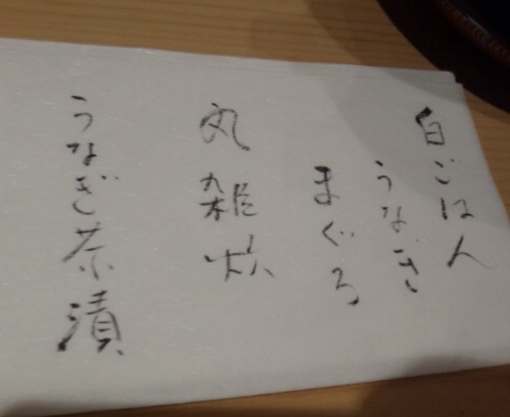 白ごはん
うなぎ
まぐろ
丸雑炊
うなぎ茶漬